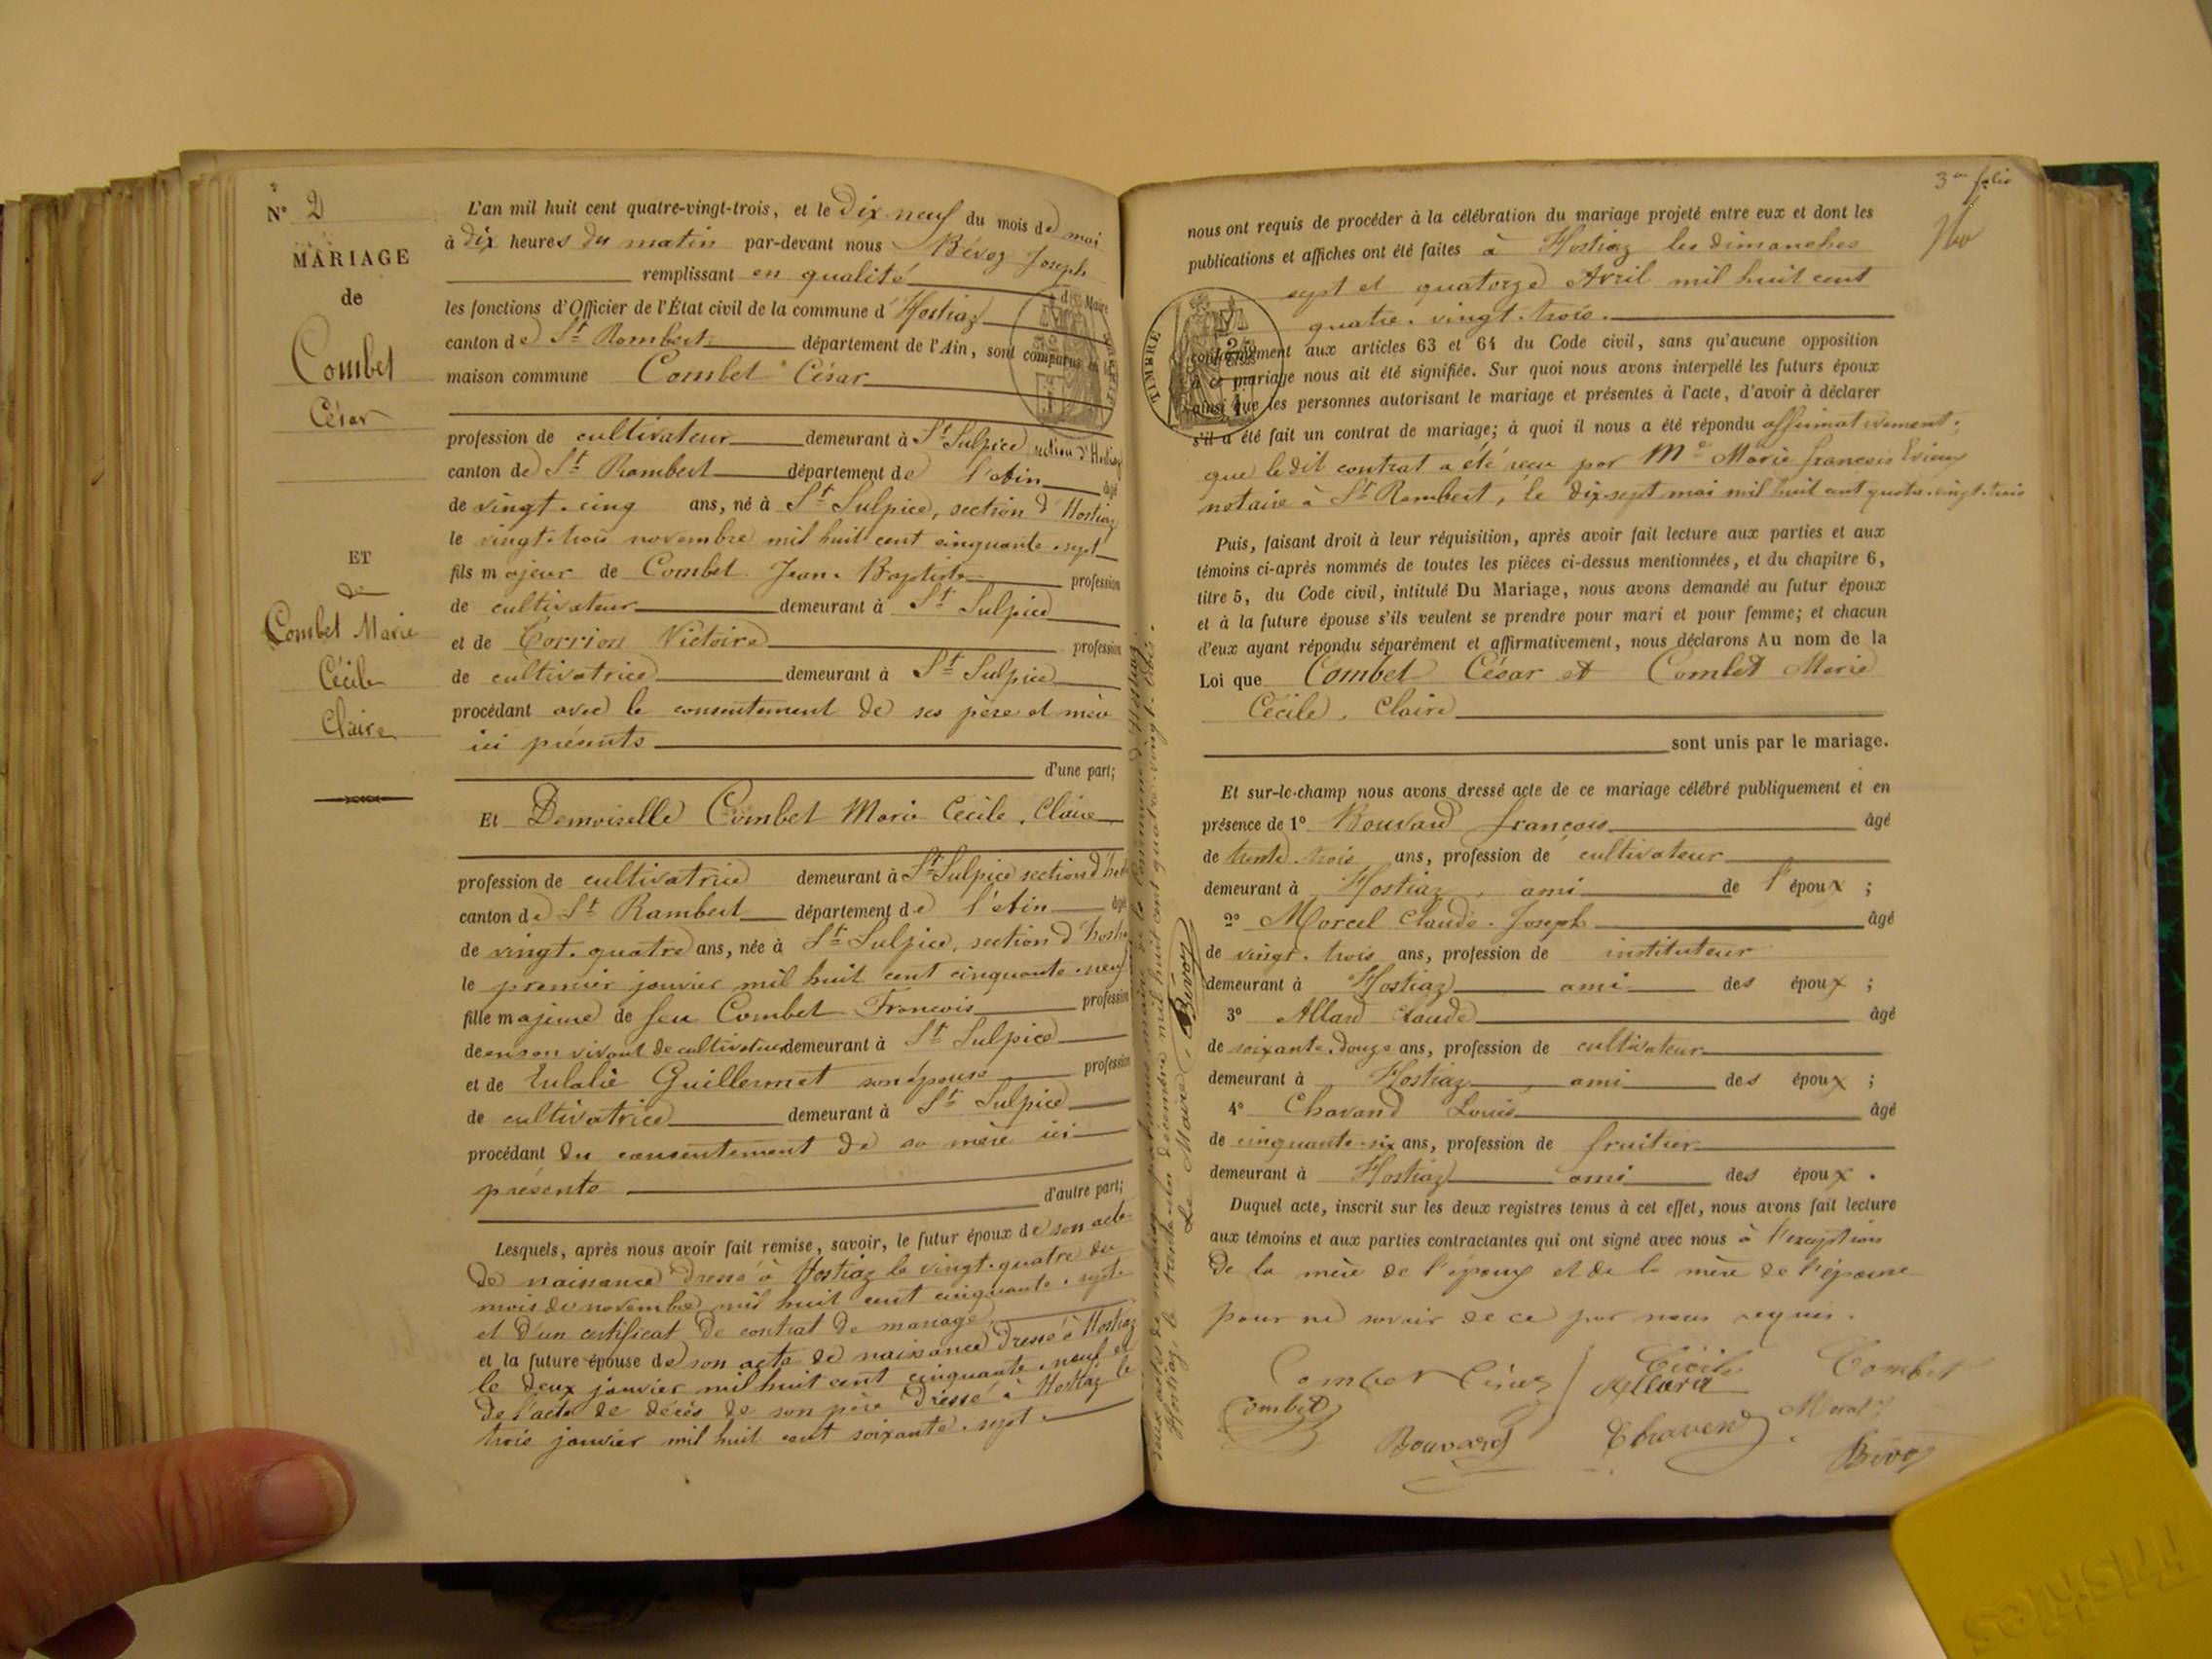 N° 2
MARIAGE
de
Combet
César
ET
de
Combet Marie
Cécile
Claire
L'an mil huit cent quatre-vingt-trois, et le Dix-neuf du mois de mai
à dix heures du matin par-devant nous Bévoz Joseph
remplissant en qualité de Maire
les fonctions d'Officier de l'État civil de la commune d'Hostiaz
canton de St Rambert département de l'Ain, sont comparus en la
maison commune Combet César
profession de cultivateur demeurant à St Sulpice section d'Hostiaz
canton de St Rambert département de l'Ain âgé
de vingt-cinq ans, né à St Sulpice, section d'Hostiaz
le vingt-trois novembre mil huit cent cinquante-sept
fils majeur de Combet Jean-Baptiste profession
de cultivateur demeurant à St Sulpice
et de Corrion Victoire profession
de cultivatrice demeurant à St Sulpice
procédant avec le consentement de ses père et mère
ici présents
d'une part;
Et Demoiselle Combet Marie Cécile, Claire
profession de cultivatrice demeurant à St Sulpice section d'hosti
canton de St Rambert département de l'Ain âgé
de vingt-quatre ans, née à St Sulpice, section d'hostia
le premier janvier mil huit cent cinquante-neuf
fille majeure de feu Combet François profession
de en son vivant de cultivateur demeurant à St Sulpice
et de Eulalie Guillermet son épouse profession
de cultivatrice demeurant à St Sulpice
procédant du consentement de sa mère ici
présente
d'autre part;
Lesquels, après nous avoir fait remise, savoir, le futur époux de son acte
de naissance dressé à Hostiaz le vingt-quatre du
mois de novembre mil huit cent cinquante-sept
et d'un certificat de contrat de mariage,
et la future épouse de son acte de naissance dressé à Hostiaz
le deux janvier mil huit cent cinquante-neuf et
de l'acte de décès de son père dressé à Hostiaz le
trois janvier mil huit cent soixante-sept.
deux actes de mariage par nous maire de la commune d'Hostiaz
Hostiaz, le trente-un décembre mil huit cent quatre-vingt-trois.
Le Maire, Bévoz
3me folio
nous ont requis de procéder à la célébration du mariage projeté entre eux et dont les
publications et affiches ont été faites à Hostiaz les dimanches
sept et quatorze Avril mil huit cent
quatre-vingt-trois.
TIMBRE
conformément aux articles 63 et 64 du Code civil, sans qu'aucune opposition
à ce mariage nous ait été signifiée. Sur quoi nous avons interpellé les futurs époux
ainsi que les personnes autorisant le mariage et présentes à l'acte, d'avoir à déclarer
s'il a été fait un contrat de mariage; à quoi il nous a été répondu affirmativement;
que ledit contrat a été reçu par Me Marie françois
notaire à St Rambert, le dix-sept mai mil huit cent quatre-vingt-trois
Puis, faisant droit à leur réquisition, après avoir fait lecture aux parties et aux
témoins ci-après nommés de toutes les pièces ci-dessus mentionnées, et du chapitre 6,
titre 5, du Code civil, intitulé Du Mariage, nous avons demandé au futur époux
et à la future épouse s'ils veulent se prendre pour mari et pour femme; et chacun
d'eux ayant répondu séparément et affirmativement, nous déclarons Au nom de la
Loi que Combet César et Combet Marie
Cécile, Claire
sont unis par le mariage.
Et sur-le-champ nous avons dressé acte de ce mariage célébré publiquement et en
présence de 1° Bouvard françois âgé
de trente-trois ans, profession de cultivateur
demeurant à Hostiaz, ami de l'époux ;
2° Morcel Claude-Joseph âgé
de vingt-trois ans, profession de instituteur
demeurant à Hostiaz ami des époux ;
3° Allard Claude âgé
de soixante-douze ans, profession de cultivateur
demeurant à Hostiaz, ami des époux ;
4° Chavand Louis âgé
de cinquante-six ans, profession de fruitier
demeurant à Hostiaz ami des époux .
Duquel acte, inscrit sur les deux registres tenus à cet effet, nous avons fait lecture
aux témoins et aux parties contractantes qui ont signé avec nous à l'exception
de la mère de l'époux et de la mère de l'épouse
pour ne savoir de ce par nous requis.
Combet César Cécile Combet
Allard
Combet
Bouvard Chavend Morcel
Bévoz
Friskies